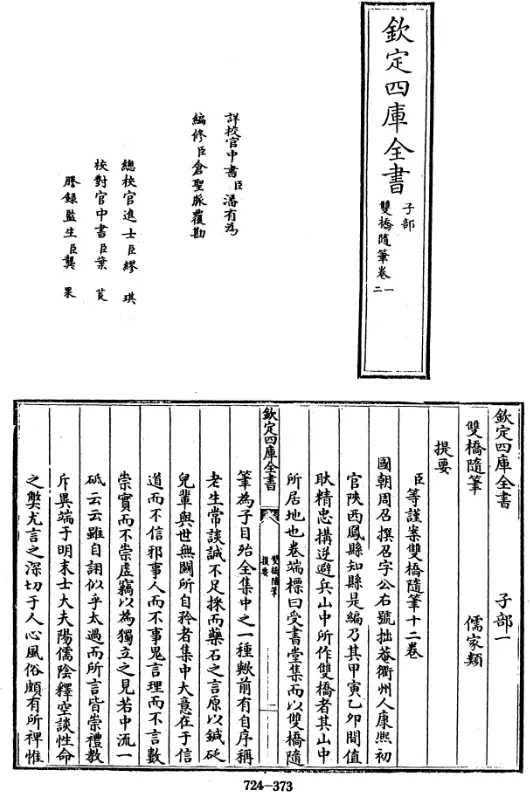 欽定四庫全書
子部
雙橋隨筆卷一
二
詳校官中書臣潘有為
編修臣倉聖脈覆勘
總校官進士臣繆琪
校對官中書臣葉菼
謄錄監生臣龔果
欽定四庫全書 子部一
雙橋隨筆 儒家類
提要
臣等謹案雙橋隨筆十二卷
國朝周召撰召字公右號拙菴衢州人康熙初
官陝西鳳縣知縣是編乃其甲寅乙卯間值
耿精忠搆逆避兵山中所作雙橋者其山中
所居地也卷端標曰受書堂集而以雙橋隨
欽定四庫全書
雙橋隨筆
提要
一
筆為子目殆全集中之一種歟前有自序稱
老生常談誠不足採而藥石之言原以鍼砭
兒輩與世無關所自矜者集中大意在于信
道而不信邪事人而不事鬼言理而不言數
崇實而不崇虛竊以為獨立之見若中流一
砥云云雖自詡似乎太過而所言皆崇禮教
斥異端于明末士大夫陽儒陰釋空談性命
之獘尤言之深切于人心風俗頗有所裨惟
724-373